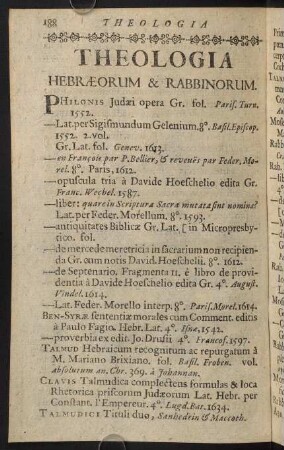 188 THEOLOGIA
THEOLOGIA
HEBRÆORUM & RABBINORUM.
PHILONIS Judæi opera Gr. fol. Paris. Turn.
1552.
—Lat. per Sigismundum Gelenium. 8°. Basil. Episcop.
1552. 2. vol.
—Gr. Lat. fol. Genev. 1613.
—en François par P. Bellier, & reveuës par Feder. Mo-
rel. 8°. Paris, 1612.
—opuscula tria à Davide Hoeschelio edita Gr.
Franc. Wechel. 1587.
—liber: quare in Scriptura Sacra mutata sint nomina?
Lat. per Feder. Morellum. 8°. 1593.
—antiquitates Biblicæ Gr. Lat. [ in Micropresby-
tico. fol.
—de mercede meretricia in sacrarium non recipien-
da Gr. cum notis David. Hoeschelii. 8°. 1612.
—de Septenario. Fragmenta 11. è libro de provi-
dentia à Davide Hoeschelio edita Gr. 4°. August.
Vindel. 1614.
—Lat. Feder. Morello interp. 8°. Paris. Morel. 1614.
BEN-SYRÆ sententiæ morales cum Comment. editis
à Paulo Fagio. Hebr. Lat. 4°. Isnæ, 1542.
—proverbia ex edit. Jo. Drusii 4°. Francof. 1597.
TALMUD Hebraicum recognitum ac repurgatum à
M. Mariano Brixiano. fol. Basil. Froben. vol.
absolutum an. Chr. 369. à Johannan.
CLAVIS Talmudica complectens formulas & loca
Rhetorica priscorum Judæorum Lat. Hebr. per
Constant. l'Empereur. 4°. Lugd. Bat. 1634.
TALMUDICI Tituli duo, Sanhedrin & Maccoth.